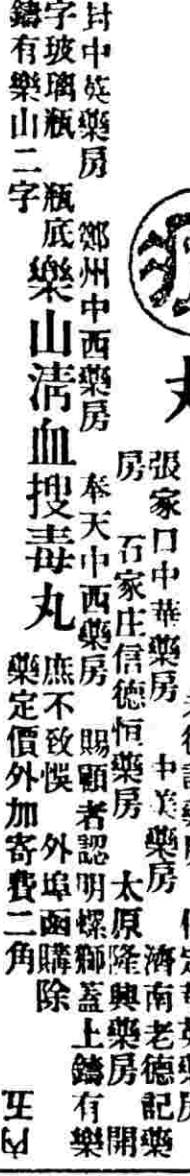 丸
張家口中華藥房 中美藥房 濟南老德記藥
房 石家庄信德恒藥房 太原隆興藥房 開
封中英藥房 鄭州中西藥房 奉天中西藥房 賜顧者認明螺獅蓋上鑄有樂
字玻璃瓶 瓶底
鑄有樂山二字
樂山淸血搜毒丸
庶不致悞 外埠函購除
藥定價外加寄費二角